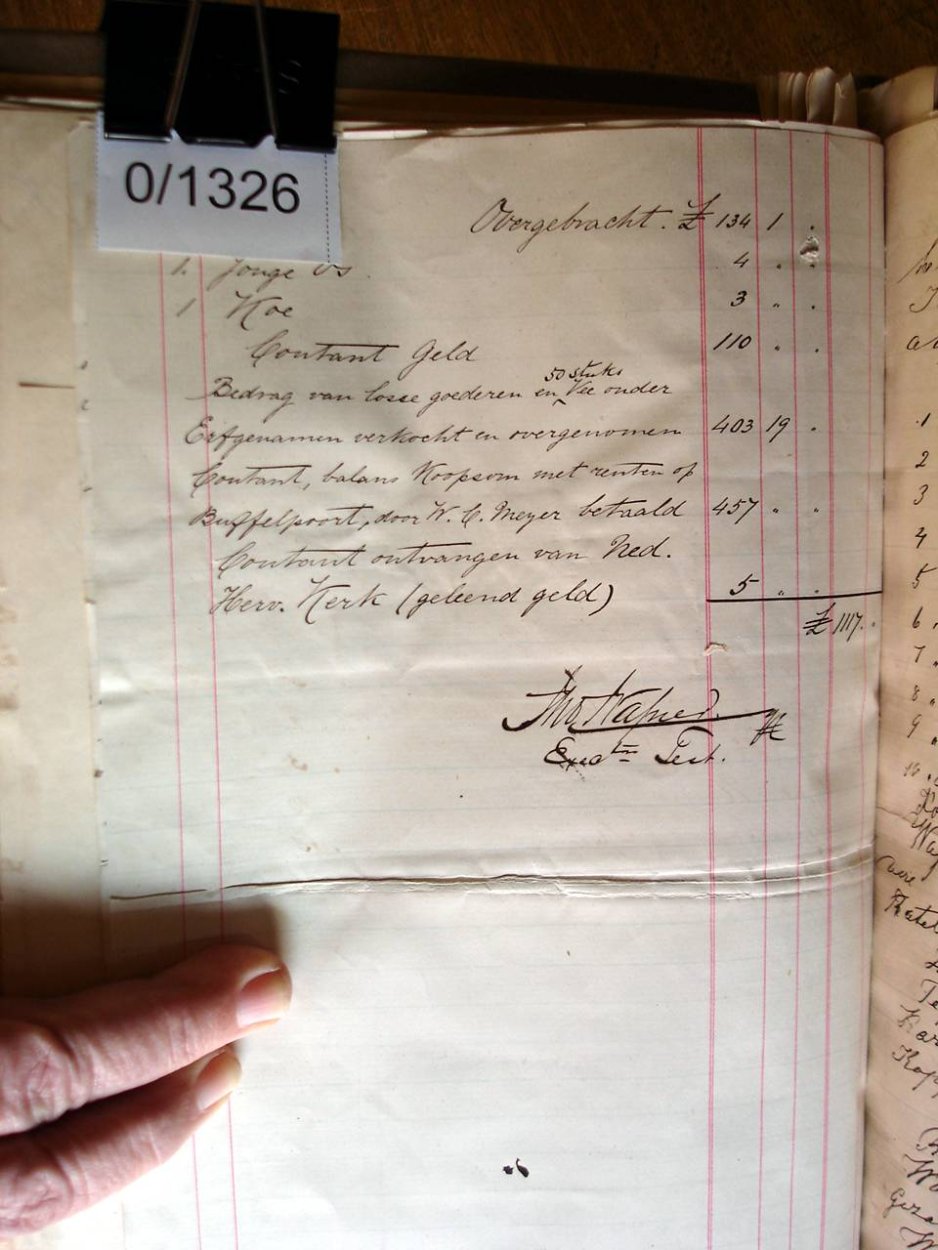 0/1326
Overgebracht. £ 134 1 .
1. Jonge Os. 4 " .
1 Koe 3 " .
Contant Geld 110 " .
50 stuks
Bedrag van losse goederen en Vee onder
Erfgenamen verkocht en overgenomen 403 19 .
Contant, balans Koopsom met renten op
Buffelpoort, door W. C. Meyer betaald 457 " "
Contant ontvangen van Ned.
Herv. Kerk (geleend geld) 5 " .
£ 1117. .
Test.
1
2
3
4
5
6
7
8
9
10